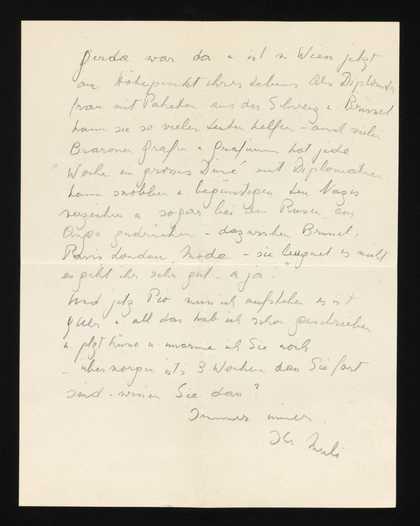 Gerda war da u ist in Wien jetzt
am Höhepunkt ihres Lebens Als Diplomaten
frau mit Paketen aus der Schweiz u Brüssel
kann sie so vielen Leuten helfen - und vielen
Baronen Grafen u Gräfinnen hat jede
Woche ein grosses Diné mit Diplomaten
kann u den Nazis
verzeihen u sogar bei den Russen ein
Auge zudrücken - dazwischen Brüssel,
Paris London, Mode - sie leugnet es nicht
es geht ihr sehr gut - a ja!
Und jetz muss ich aufstehen es ist
9 Uhr u all das hab ich schon geschrieben
u. jetzt u umarme ich Sie noch
- übermorgen ists 3 Wochen dass Sie fort
sind - wissen Sie das?
Immer immer
Ihr